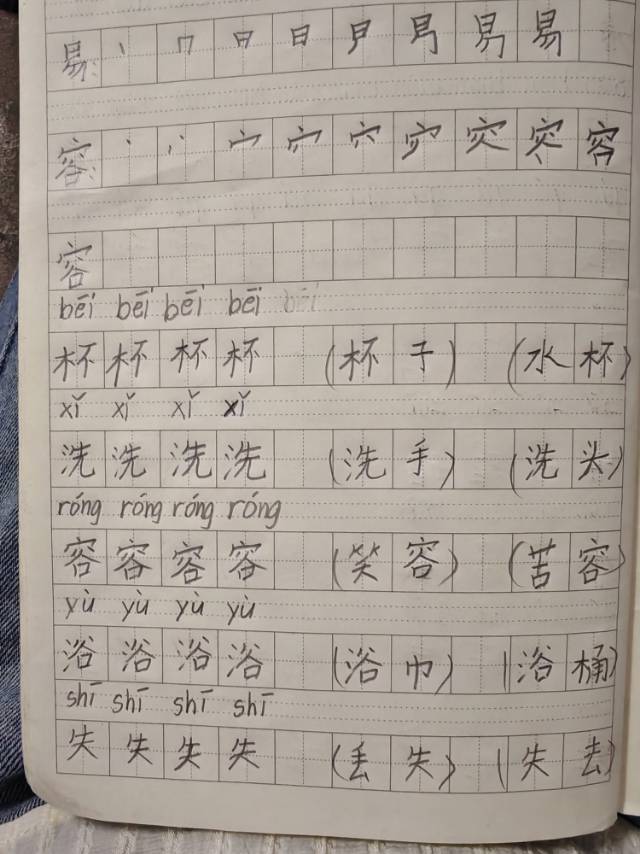 易 丶 冂 日 日 易 易
容 丶 丶丶 宀 容
容
bēi bēi bēi bēi bēi
杯 杯 杯 杯 (杯子) (水杯)
xǐ xǐ xǐ xǐ
洗 洗 洗 洗 (洗手) (洗头)
róng róng róng róng
容 容 容 容 (笑容) (苦容)
yù yù yù yù
浴 浴 浴 浴 (浴巾) (浴桶)
shī shī shī shī
失 失 失 失 (丢失) (失去)